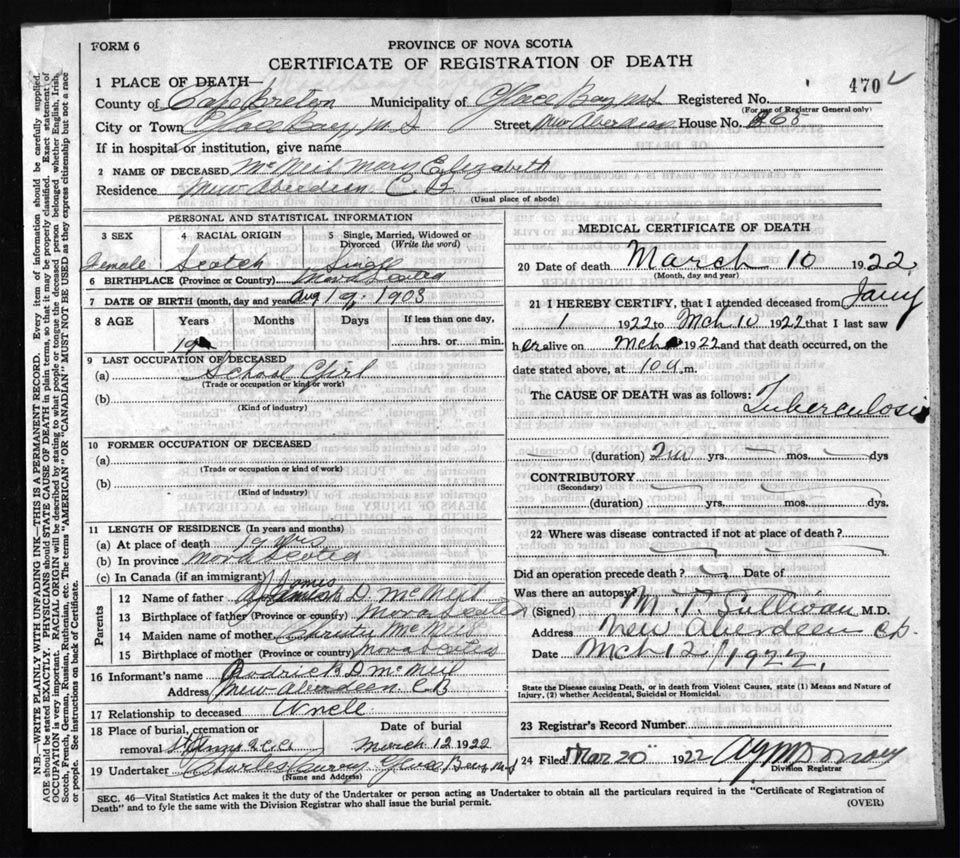 FORM 6
PROVINCE OF NOVA SCOTIA
CERTIFICATE OF REGISTRATION OF DEATH
1 PLACE OF DEATH—
470
County of Cape Breton Municipality of Glace Bay N S Registered No.
(For use of Registrar General only)
City or Town Glace Bay N S Street New Aberdeen House No. 65
If in hospital or institution, give name
2 NAME OF DECEASED McNeil Mary Elizabeth
Residence New Aberdeen C B
(Usual place of abode)
PERSONAL AND STATISTICAL INFORMATION
3 SEX 4 RACIAL ORIGIN 5 Single, Married, Widowed or Divorced (Write the word)
Female Scotch Single
6 BIRTHPLACE (Province or Country) Nova Scotia
7 DATE OF BIRTH (month, day and year) Aug 19 1903
8 AGE Years Months Days If less than one day,
19 hrs. or min.
9 LAST OCCUPATION OF DECEASED
(a) School Girl
(Trade or occupation or kind of work)
(b)
(Kind of industry)
10 FORMER OCCUPATION OF DECEASED
(a)
(Trade or occupation or kind of work)
(b)
(Kind of industry)
11 LENGTH OF RESIDENCE (In years and months)
(a) At place of death 19 yrs
(b) In province Nova Scotia
(c) In Canada (if an immigrant)
Parents
12 Name of father James D. McNeil
13 Birthplace of father (Province or country) Nova Scotia
14 Maiden name of mother Christie McNeil
15 Birthplace of mother (Province or country) Nova Scotia
16 Informant's name Rodrick D McNeil
Address New Aberdeen CB
17 Relationship to deceased Uncle
18 Place of burial, cremation or removal Date of burial
St Anns March 12 1922
19 Undertaker Charles Curry Glace Bay N S
(Name and Address)
MEDICAL CERTIFICATE OF DEATH
20 Date of death March 10 1922
(Month, day and year)
21 I HEREBY CERTIFY, that I attended deceased from Jany
1 1922 to Mch 10 1922 that I last saw
her alive on Mch 1922 and that death occurred, on the
date stated above, at 10 a. m.
The CAUSE OF DEATH was as follows: Tuberculosis
(duration) Two yrs. — mos. — dys
CONTRIBUTORY
(Secondary)
(duration) yrs. mos. dys.
22 Where was disease contracted if not at place of death?
Did an operation precede death? Date of
Was there an autopsy?
(Signed) M. T. Sullivan M.D.
Address New Aberdeen C.B.
Date Mch 12/1922.
State the Disease causing Death, or in death from Violent Causes, state (1) Means and Nature of Injury, (2) whether Accidental, Suicidal or Homicidal.
23 Registrar's Record Number
24 Filed Mar 20 1922
Division Registrar
SEC. 46—Vital Statistics Act makes it the duty of the Undertaker or person acting as Undertaker to obtain all the particulars required in the "Certificate of Registration of Death" and to fyle the same with the Division Registrar who shall issue the burial permit.
(OVER)
N.B.—WRITE PLAINLY WITH UNFADING INK—THIS IS A PERMANENT RECORD. Every item of information should be carefully supplied.
AGE should be stated EXACTLY. PHYSICIANS should STATE CAUSE OF DEATH in plain terms, so that it may be properly classified. Exact statement of
OCCUPATION is very important. RACIAL ORIGIN will be described by stating to what people or tongue the deceased person belonged whether English, Irish,
Scotch, French, German, Russian, Ruthenian, etc. The terms "AMERICAN" OR "CANADIAN" MUST NOT BE USED as they express citizenship but not a race
or people. See instructions on back of Certificate.